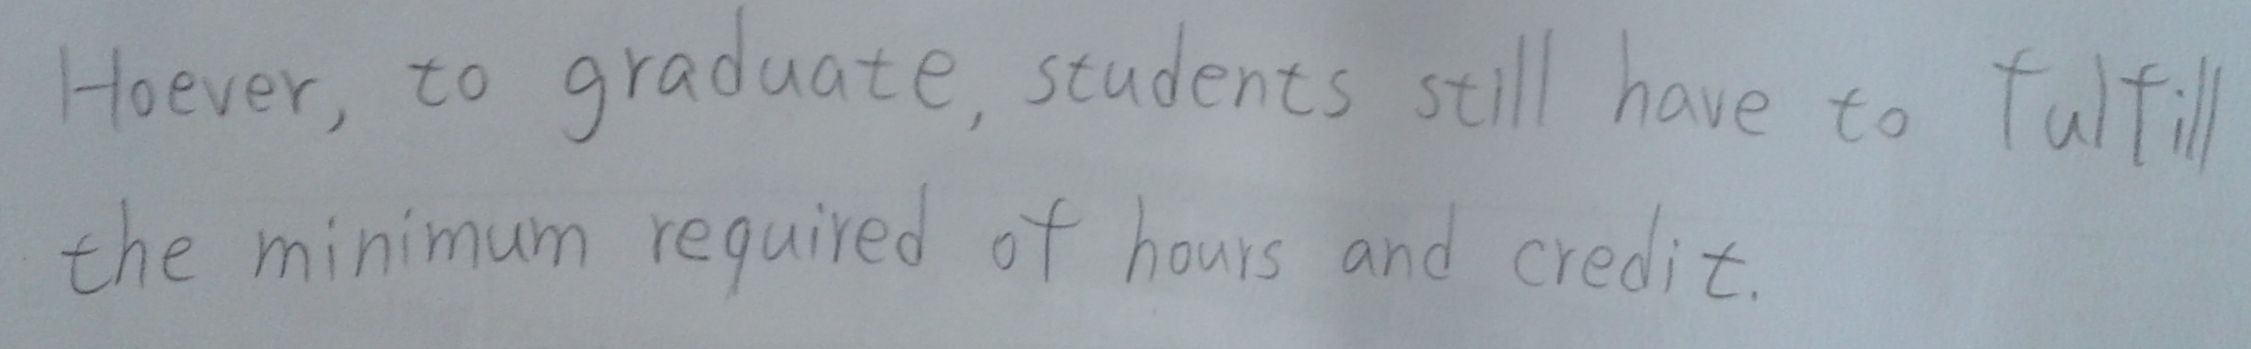 Hoever, to graduate, students still have to fulfill
the minimum required of hours and credit.